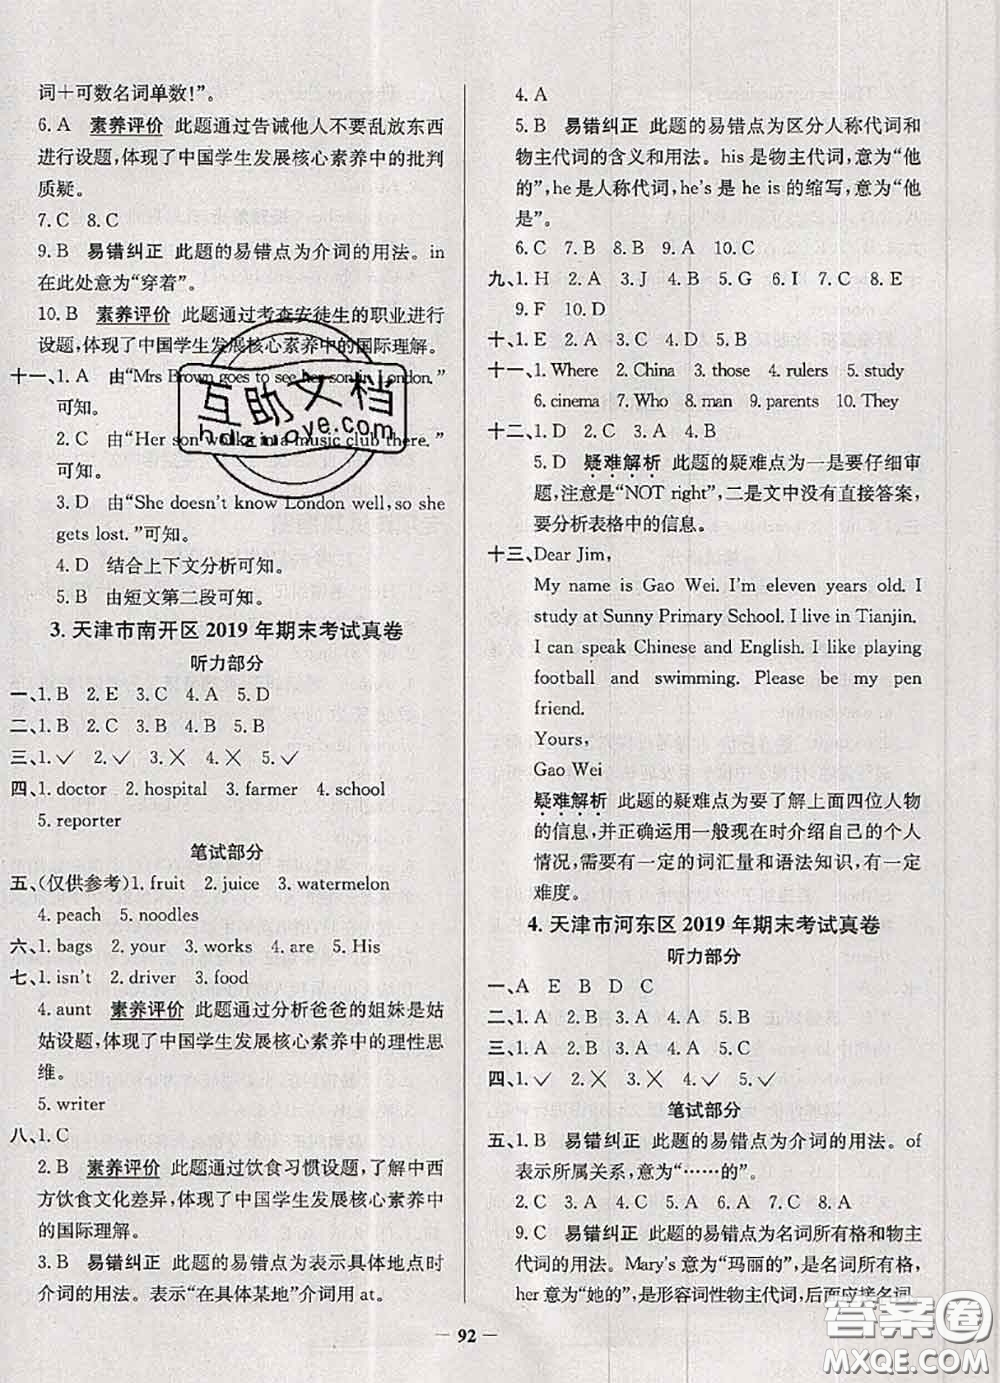 词＋可数名词单数!”。
6. A 素养评价 此题通过告诫他人不要乱放东西
进行设题,体现了中国学生发展核心素养中的批判
质疑。
7. C 8. C
9. B 易错纠正 此题的易错点为介词的用法。in
在此处意为“穿着”。
10. B 素养评价 此题通过考查安徒生的职业进行
设题,体现了中国学生发展核心素养中的国际理解。
十一、1. A 由“Mrs Brown goes to see her son in London.”
可知。
2. C 由“Her son works in a music club there.”
可知。
3. D 由“She doesn't know London well, so she
gets lost.”可知。
4. D 结合上下文分析可知。
5. B 由短文第二段可知。
3. 天津市南开区 2019 年期末考试真卷
听力部分
一、1. B 2. E 3. C 4. A 5. D
二、1. B 2. C 3. B 4. B 5. A
三、1. ✓ 2. ✓ 3. ✗ 4. ✗ 5. ✓
四、1. doctor 2. hospital 3. farmer 4. school
5. reporter
笔试部分
五、(仅供参考)1. fruit 2. juice 3. watermelon
4. peach 5. noodles
六、1. bags 2. your 3. works 4. are 5. His
七、1. isn't 2. driver 3. food
4. aunt 素养评价 此题通过分析爸爸的姐妹是姑
姑设题,体现了中国学生发展核心素养中的理性思
维。
5. writer
八、1. C
2. B 素养评价 此题通过饮食习惯设题,了解中西
方饮食文化差异,体现了中国学生发展核心素养中
的国际理解。
3. B 易错纠正 此题的易错点为表示具体地点时
介词的用法。表示“在具体某地”介词用 at。
4. A
5. B 易错纠正 此题的易错点为区分人称代词和
物主代词的含义和用法。his 是物主代词,意为“他
的”,he 是人称代词,he's 是 he is 的缩写,意为“他
是”。
6. C 7. B 8. B 9. A 10. C
九、1. H 2. A 3. J 4. B 5. G 6. I 7. C 8. E
9. F 10. D
十、1. E 2. A 3. C 4. D 5. B
十一、1. Where 2. China 3. those 4. rulers 5. study
6. cinema 7. Who 8. man 9. parents 10. They
十二、1. D 2. C 3. A 4. B
5. D 疑难解析 此题的疑难点为一是要仔细审
题,注意是“NOT right”,二是文中没有直接答案,
要分析表格中的信息。
十三、Dear Jim,
My name is Gao Wei. I'm eleven years old. I
study at Sunny Primary School. I live in Tianjin.
I can speak Chinese and English. I like playing
football and swimming. Please be my pen
friend.
Yours,
Gao Wei
疑难解析 此题的疑难点为要了解上面四位人物
的信息,并正确运用一般现在时介绍自己的个人
情况,需要有一定的词汇量和语法知识,有一定
难度。
4. 天津市河东区 2019 年期末考试真卷
听力部分
一、A E B D C
二、1. A 2. B 3. A 4. A 5. B
三、1. C 2. B 3. A 4. C 5. B
四、1. ✓ 2. ✗ 3. ✗ 4. ✓ 5. ✓
笔试部分
五、1. B 易错纠正 此题的易错点为介词的用法。of
表示所属关系,意为“……的”。
2. C 3. A 4. C 5. C 6. B 7. B 8. A
9. C 易错纠正 此题的易错点为名词所有格和物主
代词的用法。Mary's 意为“玛丽的”,是名词所有格;
her 意为“她的”,是形容词性物主代词,后面应接名词。
92
互助文档
hdzuoye.com
答案圈
MXQE.COM